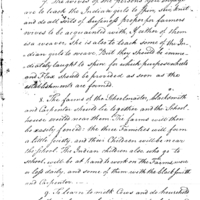 7. The wives of the persons you employ
are to teach the Indian girls to spin, sew, knit
and do all sorts of business proper for farmers
wives to be acquainted with. If either of them
is a weaver, she is also to teach some of the Indian
dian girls to weave. But they should be immediately
taught to spin for which purpose wool
and Flax should be provided as soon as the
establishments are formed.
8. The farms of the Schoolmaster, Blacksmith
and Carpenter should lie together and the School
house erected near them. The farms will then
be easily fenced: the three Families will form
a little society, and their Children will be near
the School. The Indian children also who go to
School, will be at hand to work on the Farms
a left daily, and some of them with the blacksmith
and Carpenter.
9. To learn to milk Cows and do household